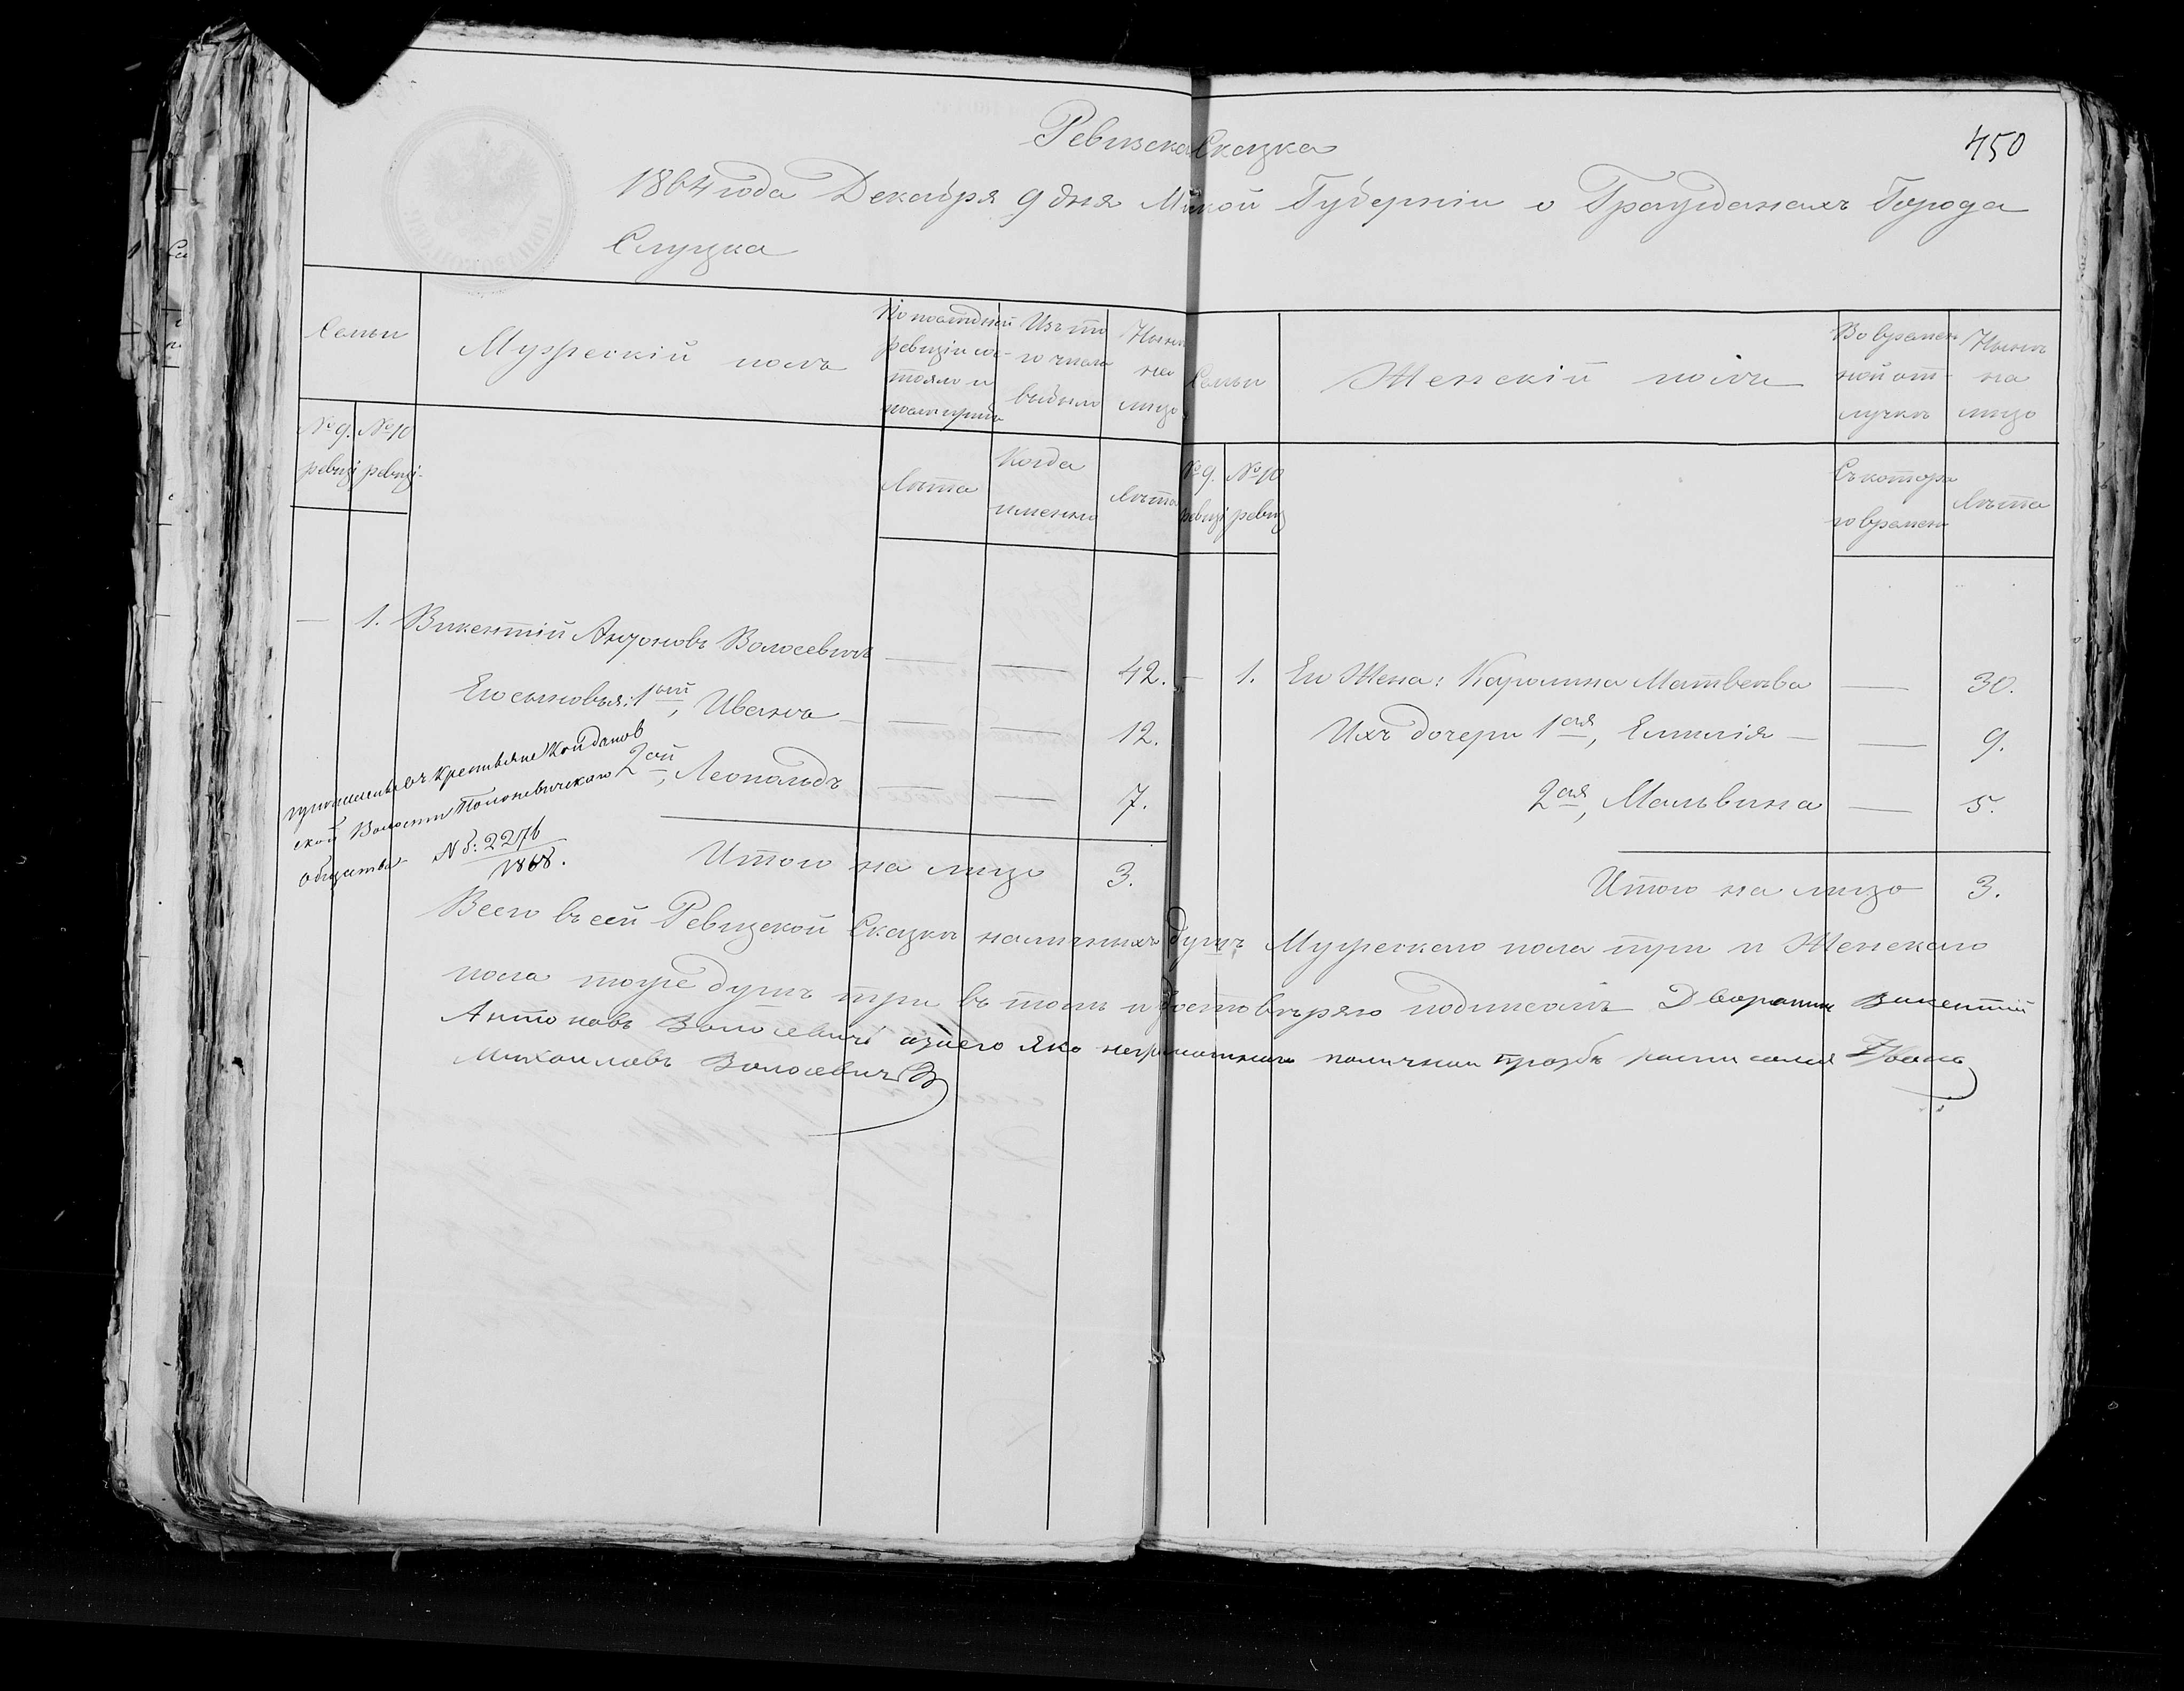 450
Ревизская Сказка
1864 года Декабря 9 дня Минской Губерніи о Гражданахъ Города
Слуцка
Семьи
Мужескій полъ
По последней
ревизіи со-
тояло и
после прибы
Изъ то
го числа
выбыло
Ныне
на
лицо
Семьи
Женскій полъ
Во времен
ной от-
лучке
Ныне
на
лицо
№ 9. ревизі
№ 10 ревизі-
Лета
Когда
именно
Лета
№ 9. ревизі
№ 10 ревиз
Съ котора
го времен
Лета
— 1. Викентій Антоновъ Волосевичъ — — 42. — 1. Его Жена: Каролина Матвеева — 30.
Его сыновья: 1ый, Иванъ — — — 12. Ихъ дочери 1ая, Емилія — — 9.
2ой, Леопольдъ — — 7. 2ая, Мальвина — 5.
крестьяне Койданов
ской Волости Полоневичскаго
общества №: 2276
1868.
Итого на лицо 3. Итого на лицо 3.
Всего въ сей Ревизской Сказке наличныхъ душъ Мужескаго пола три и Женскаго
пола тоже душъ три въ томъ и достоверяю подписомъ Дворянин Викентій
Антоновъ Волосевичъ а за его яко неграмотнаго по личной прозбе росписался Иванъ
Михаиловъ Волосевичъ